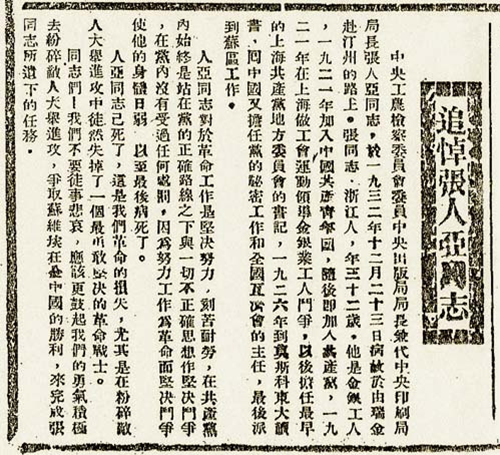 追悼張人亞同志
中央工農檢察委員會委員中央出版局局長兼代中央印刷局
局長張人亞同志,於一九三二年十二月二十三日病故於由瑞金
赴汀州的路上。張同志,浙江人,年三十二歲。他是金銀工人
,一九二一年加入中國共產青年團,隨後即加入共產黨,一九
二一年在上海做工會運動領導金銀業工人鬥爭,以後擔任最早
的上海共產黨地方委員會的書記,一九二六年到莫斯科東大讀
書,回中國又擔任黨的秘密工作和全國互濟會的主任,最後派
到蘇區工作。
人亞同志對於革命工作是堅決努力,刻苦耐勞,在共產黨
內始終是站在黨的正確路線之下與一切不正確思想作堅決鬥爭
,在黨內沒有受過任何處罰,因為努力工作為革命而堅決鬥爭
使他的身體日弱,以至最後病死了。
人亞同志已死了,這是我們革命的損失,尤其是在粉碎敵
人大舉進攻中徒然失掉了一個最勇敢堅決的革命戰士。
同志們!我們不要徒事悲哀,應該更鼓起我們的勇氣積極
去粉碎敵人大舉進攻,爭取蘇維埃在全中國的勝利,來完成張
同志所遺下的任務。